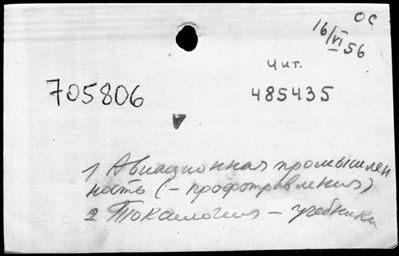 ОС
16/VI 56
Чит.
705806
485435
1 Авиационная промышлен
ность (– профотравления)
2 Токсикология – учебники